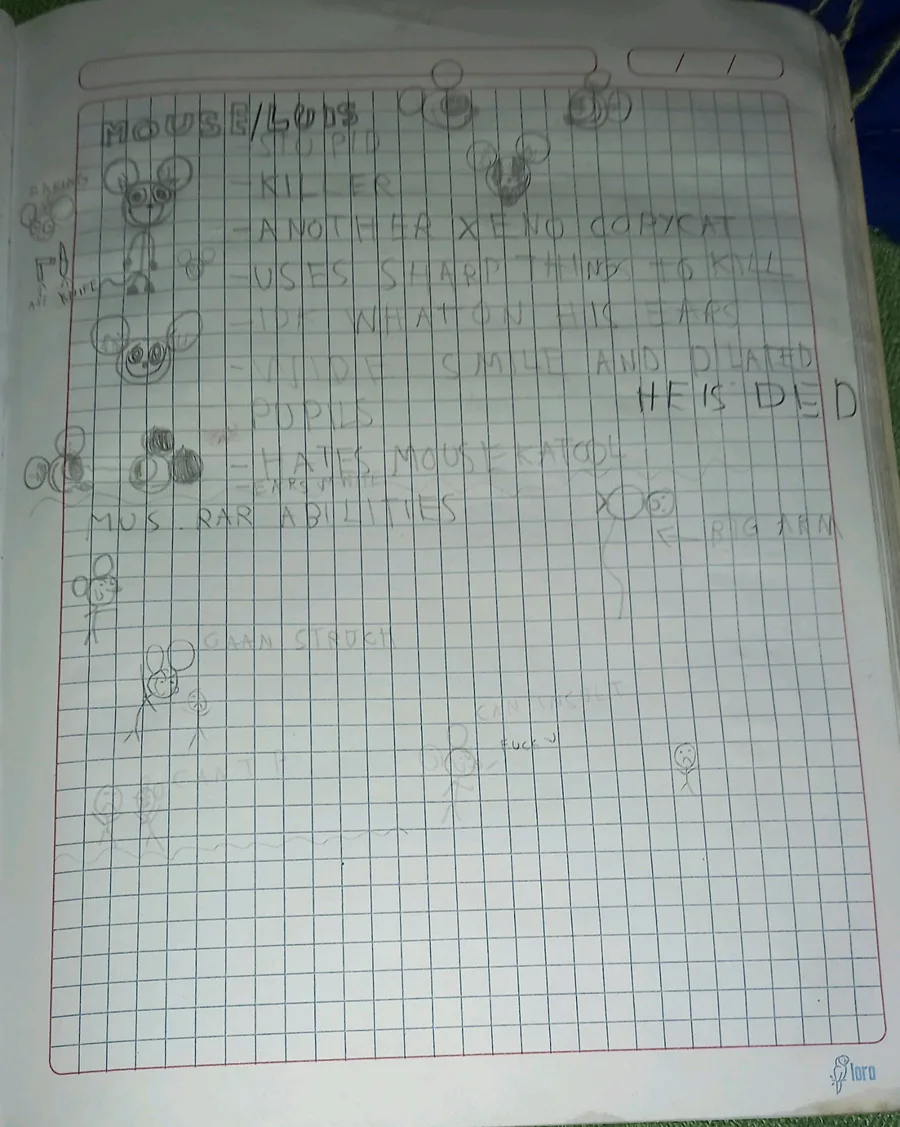 MOUSE/LUIS
STUPID
-KILLER
-ANOTHER XENO COPYCAT
-USES SHARP THINGS TO KILL
KNIFE
-IDK WHAT ON HIS EARS
-WIDE SMILE AND DILATED
PUPILS
HE IS DED
-HATES MOUSEKATOOL
MUS.RAR ABILITIES
BIG ARM
CAN INSULT
FUCK U
loro